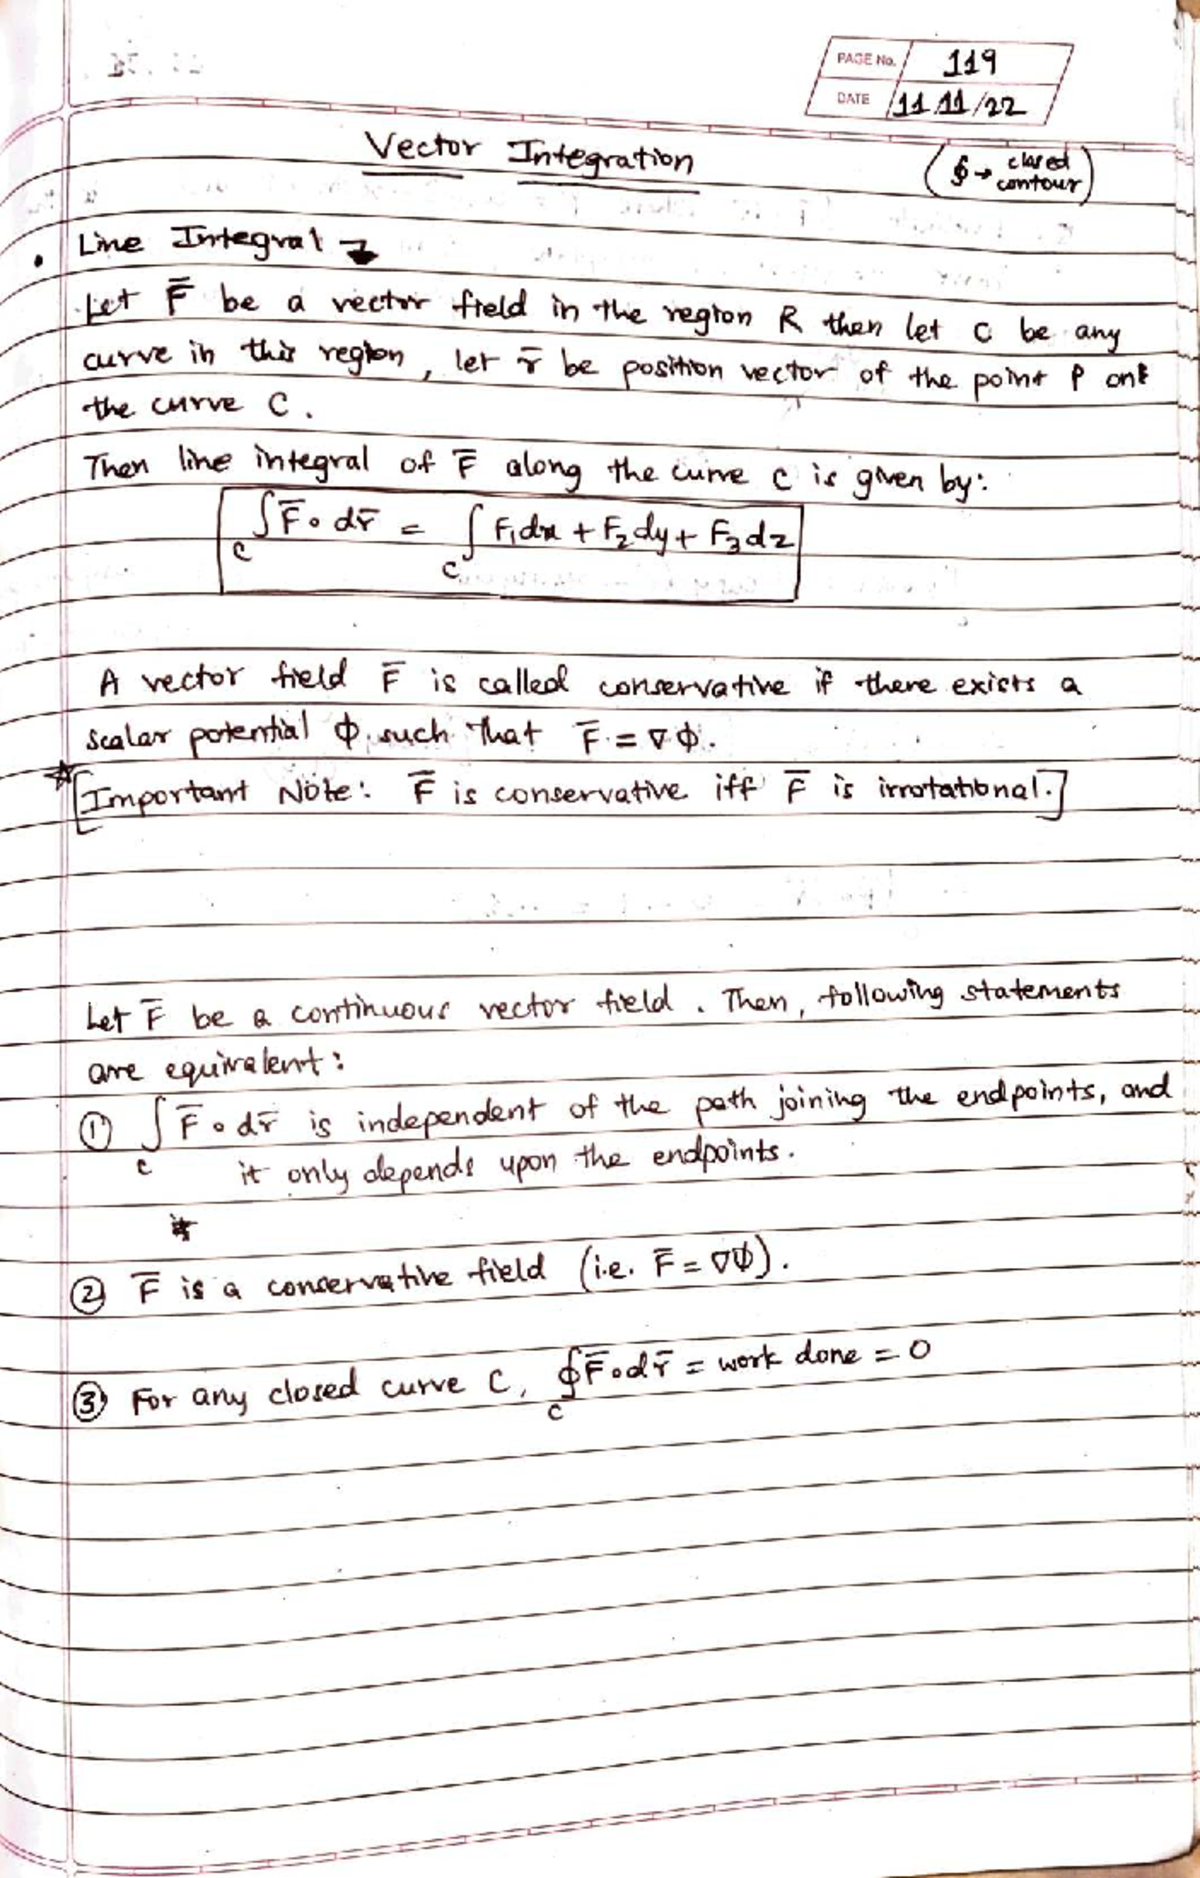 PAGE No. 119
DATE 11/11/22
Vector Integration
(∮ → closed
contour)
• Line Integral
Let F̄ be a vector field in the region R then let C be any
curve in this region, let r̄ be position vector of the point P on
the curve C.
Then line integral of F̄ along the curve C is given by:
∫_C F̄ ∘ dr̄ = ∫_C F₁dx + F₂dy + F₃dz
A vector field F̄ is called conservative if there exists a
scalar potential ϕ such that F̄ = ∇ϕ.
☆ [Important Note: F̄ is conservative iff F̄ is irrotational.]
Let F̄ be a continuous vector field. Then, following statements
are equivalent:
① ∫_C F̄ ∘ dr̄ is independent of the path joining the endpoints, and
it only depends upon the endpoints.
② F̄ is a conservative field (i.e. F̄ = ∇ϕ).
③ For any closed curve C, ∮_C F̄ ∘ dr̄ = work done = 0